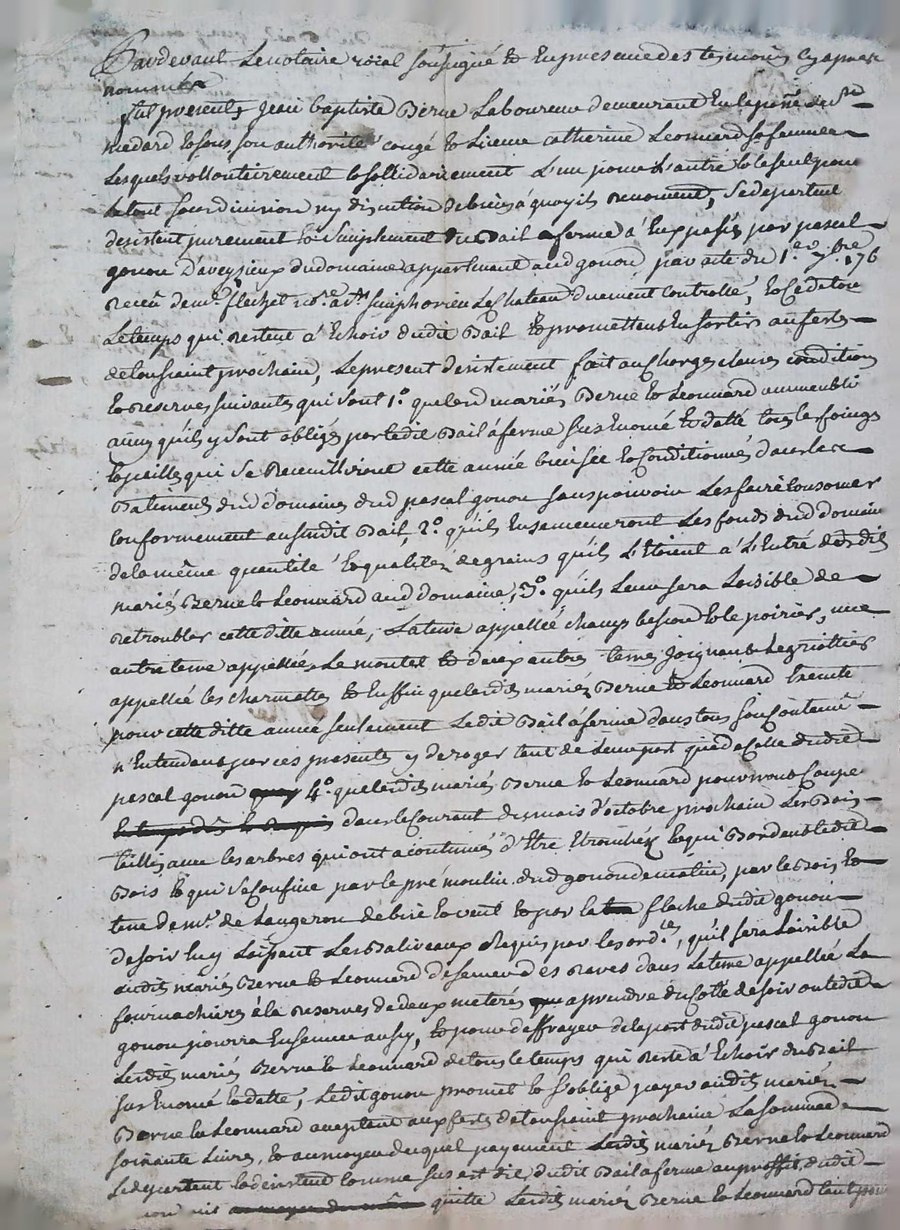 Pardevant Le notaire roial soussigné & En presence des temoins cy apres
nommés
fut presents, Jean baptiste Berne Laboureur demeurant En la psse de St
medard & sous son authorité congé & Licence catherine Leonnard sa femme
Lesquels vollontairement & sollidairement L'un pour L'autre & le seul pour
le tout sans division ny discution de biens à quoy ils renoncent, Se departent
desistent purement & simplement du Bail a ferme à Eux passés par pascal
gonon D'aveysieux du domaine appartenant aud gonon par acte du 1er 7bre 176
receu de me flechet nore a St Simphorien Le Chateau duement controllé, & ce datore
Le temps qui restent à Echoir dudit Bail & promettent En sortir au festes
de toussaint prochain, Le present desistement fait au Charges clauses conditions
& reserves suivantes qui sont 1º que lesd mariés Berne & Leonnard ammeubli
ainsy qu'ils y sont obligés par ledit Bail à ferme sus Enomé & datté tous les foings
& pailles qui Se Recuilliront cette année bien sec & Conditionnés dans les
Batiments dud domaine dud pascal gonon sans pouvoir Les faire Consomer
conformement au susdit Bail, 2º qu'ils Ensemenceront Les fonds dud domaine
de la même quantité & qualitéz de grains qu'ils L'Etoient à L'Entré desdits
mariés Berne & Leonnard aud domaine, 3º qu'ils Leur sera Loisible de
retroubler cette ditte année, La terre appellée champ besson & le poirier, une
autre terre appellée Le montel & deux autres terres joignant Le griottier
appellée les charmattes & Enfin que lesdits mariés Berne & Leonnard Execute
pour cette ditte année seulement Ledit Bail à ferme dans tous son Contenu
n'Entendant par ces presentes y deroger tant de Leur part que de Celle dudit
pascal gonon 4º que lesdits mariés Berne & Leonnard pourront Coupe
dans le Courant du mois d'octobre prochain Les Bois
taillis avec les arbres qui ont acoutumés d'Etre Etronchéz & qui Bordent ledit
Bois & qui Se Confine par le pré moulin dud gonon de matin, par le Bois &
terre de mr. de Laugeron de bize & vent & par la fleche dudit gonon
de soir luy Laissant Les Baliveaux Requis par les ordces, qu'il sera Loisible
audits mariés Berne & Leonnard de semer des raves dans La terre appellée La
fournachire à la reserves de deux meterés a prendre du Cotté de soir ou ledit
gonon pourra Ensemencer aussy, & pour deffrayer de la part dudit pascal gonon
Lesdits mariés Berne & Leonnard de tous le temps qui Reste à Echoir du Bail
sus Enomé & datté, Ledit gonon promet & s'oblige payer audits mariés
Berne & Leonnard acceptent aux fêtes de toussaint prochaine La somme de
soixante Livres, & au moyen duquel payement Lesdits mariés Berne & Leonnard
Se departent & desistent comme sus est dit, dudit Bail a ferme au proffit dudit
quitte Lesdits mariés Berne & Leonnard tant pour